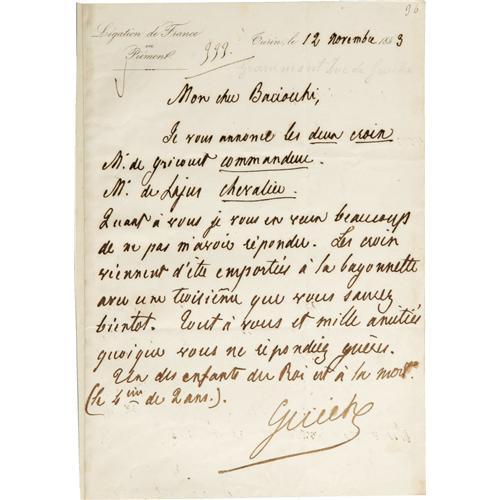 96
Légation de France
en
Piémont
999.
Turin, le 12 novembre 1853
Grammont Duc de Guiche
Mon cher Baciochi,
Je vous annonce les deux croix
Mr. de Gricourt commandeur.
Mr. de Lajus chevalier.
Quant à vous je vous en veux beaucoup
de ne pas m'avoir répondu. Les croix
viennent d'être emportées à la bayonnette
avec une troisième que vous saurez
bientôt. Tout à vous et mille amitiés
quoique vous ne répondiez guères.
Un des enfants du Roi est à la mort
(le 4ème de 2 ans.).
Guiche